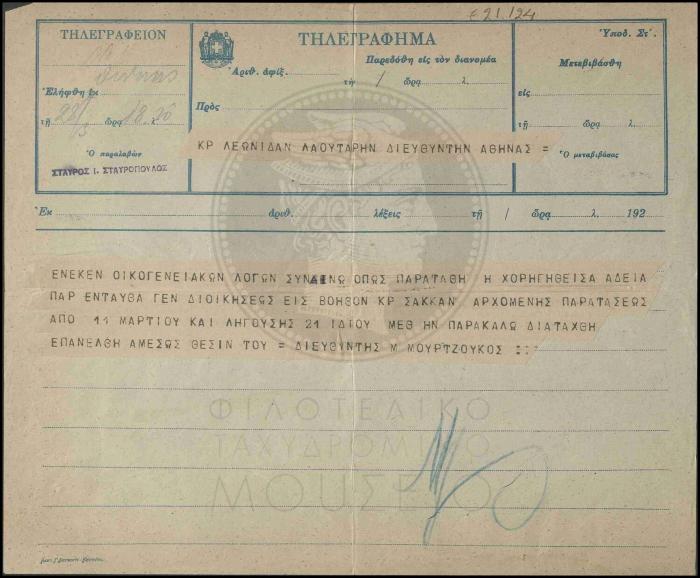 ε 21.124
ΤΗΛΕΓΡΑΦΕΙΟΝ
Ἐλήφθη ἐκ
τῇ 22/3 ὥρᾳ 18.20
Ὁ παραλαβών
ΣΤΑΥΡΟΣ Ι. ΣΤΑΥΡΟΠΟΥΛΟΣ
ΤΗΛΕΓΡΑΦΗΜΑ
Ἀριθ. ἀφίξ.
Παρεδόθη εἰς τὸν διανομέα
τῇ / ὥρᾳ λ.
Πρὸς
ΚΡ ΛΕΩΝΙΔΑΝ ΛΑΟΥΤΑΡΗΝ ΔΙΕΥΘΥΝΤΗΝ ΑΘΗΝΑΣ =
Ὑποδ. Στ΄.
Μετεβιβάσθη
εἰς
τῇ ὥρᾳ λ.
Ὁ μεταβιβάσας
Ἐκ ἀριθ. λέξεις τῇ / ὥρᾳ λ. 192
ΕΝΕΚΕΝ ΟΙΚΟΓΕΝΕΙΑΚΩΝ ΛΟΓΩΝ ΣΥΝΑΙΝΩ ΟΠΩΣ ΠΑΡΑΤΑΘΗ Η ΧΟΡΗΓΗΘΕΙΣΑ ΑΔΕΙΑ
ΠΑΡ ΕΝΤΑΥΘΑ ΓΕΝ ΔΙΟΙΚΗΣΕΩΣ ΕΙΣ ΒΟΗΘΟΝ ΚΡ ΣΑΚΚΑΝ ΑΡΧΟΜΕΝΗΣ ΠΑΡΑΤΑΣΕΩΣ
ΑΠΟ 11 ΜΑΡΤΙΟΥ ΚΑΙ ΛΗΓΟΥΣΗΣ 21 ΙΔΙΟΥ ΜΕΘ ΗΝ ΠΑΡΑΚΑΛΩ ΔΙΑΤΑΧΘΗ
ΕΠΑΝΕΛΘΗ ΑΜΕΣΩΣ ΘΕΣΙΝ ΤΟΥ = ΔΙΕΥΘΥΝΤΗΣ Μ ΜΟΥΡΤΖΟΥΚΟΣ :::
ΦΙΛΟΤΕΛΙΚΟ
ΤΑΧΥΔΡΟΜΙΚΟ
ΜΟΥΣΕΙΟ